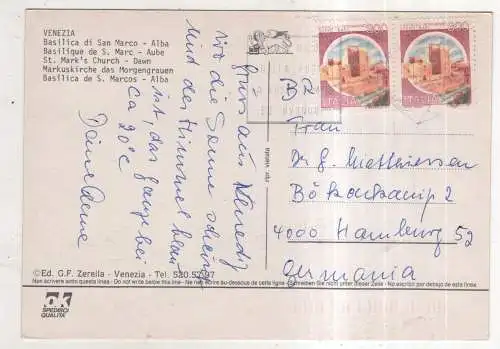 VENEZIA
Basilica di San Marco - Alba
Basilique de S. Marc - Aube
St. Mark's Church - Dawn
Markuskirche das Morgengrauen
Basílica de S. Marcos - Alba
Grüss aus Venedig
wo die Sonne scheint
und der Himmel blau
ist, das ganze bei
ca 20°C
Deine
ITALIA
ITALIA
BRD
Frau
Dr. G.
2
2000 Hamburg 52
Germania
©Ed. G.F. Zerella - Venezia - Tel. 520.52.97
Non scrivere sotto questa linea - Do not write below this line - Ne rien écrire au-dessous de cette ligne - Schreiben Sie nicht unter dieser Zeile - No escribir por debajo de esta línea
OK
SPEDISCI
QUALITÀ